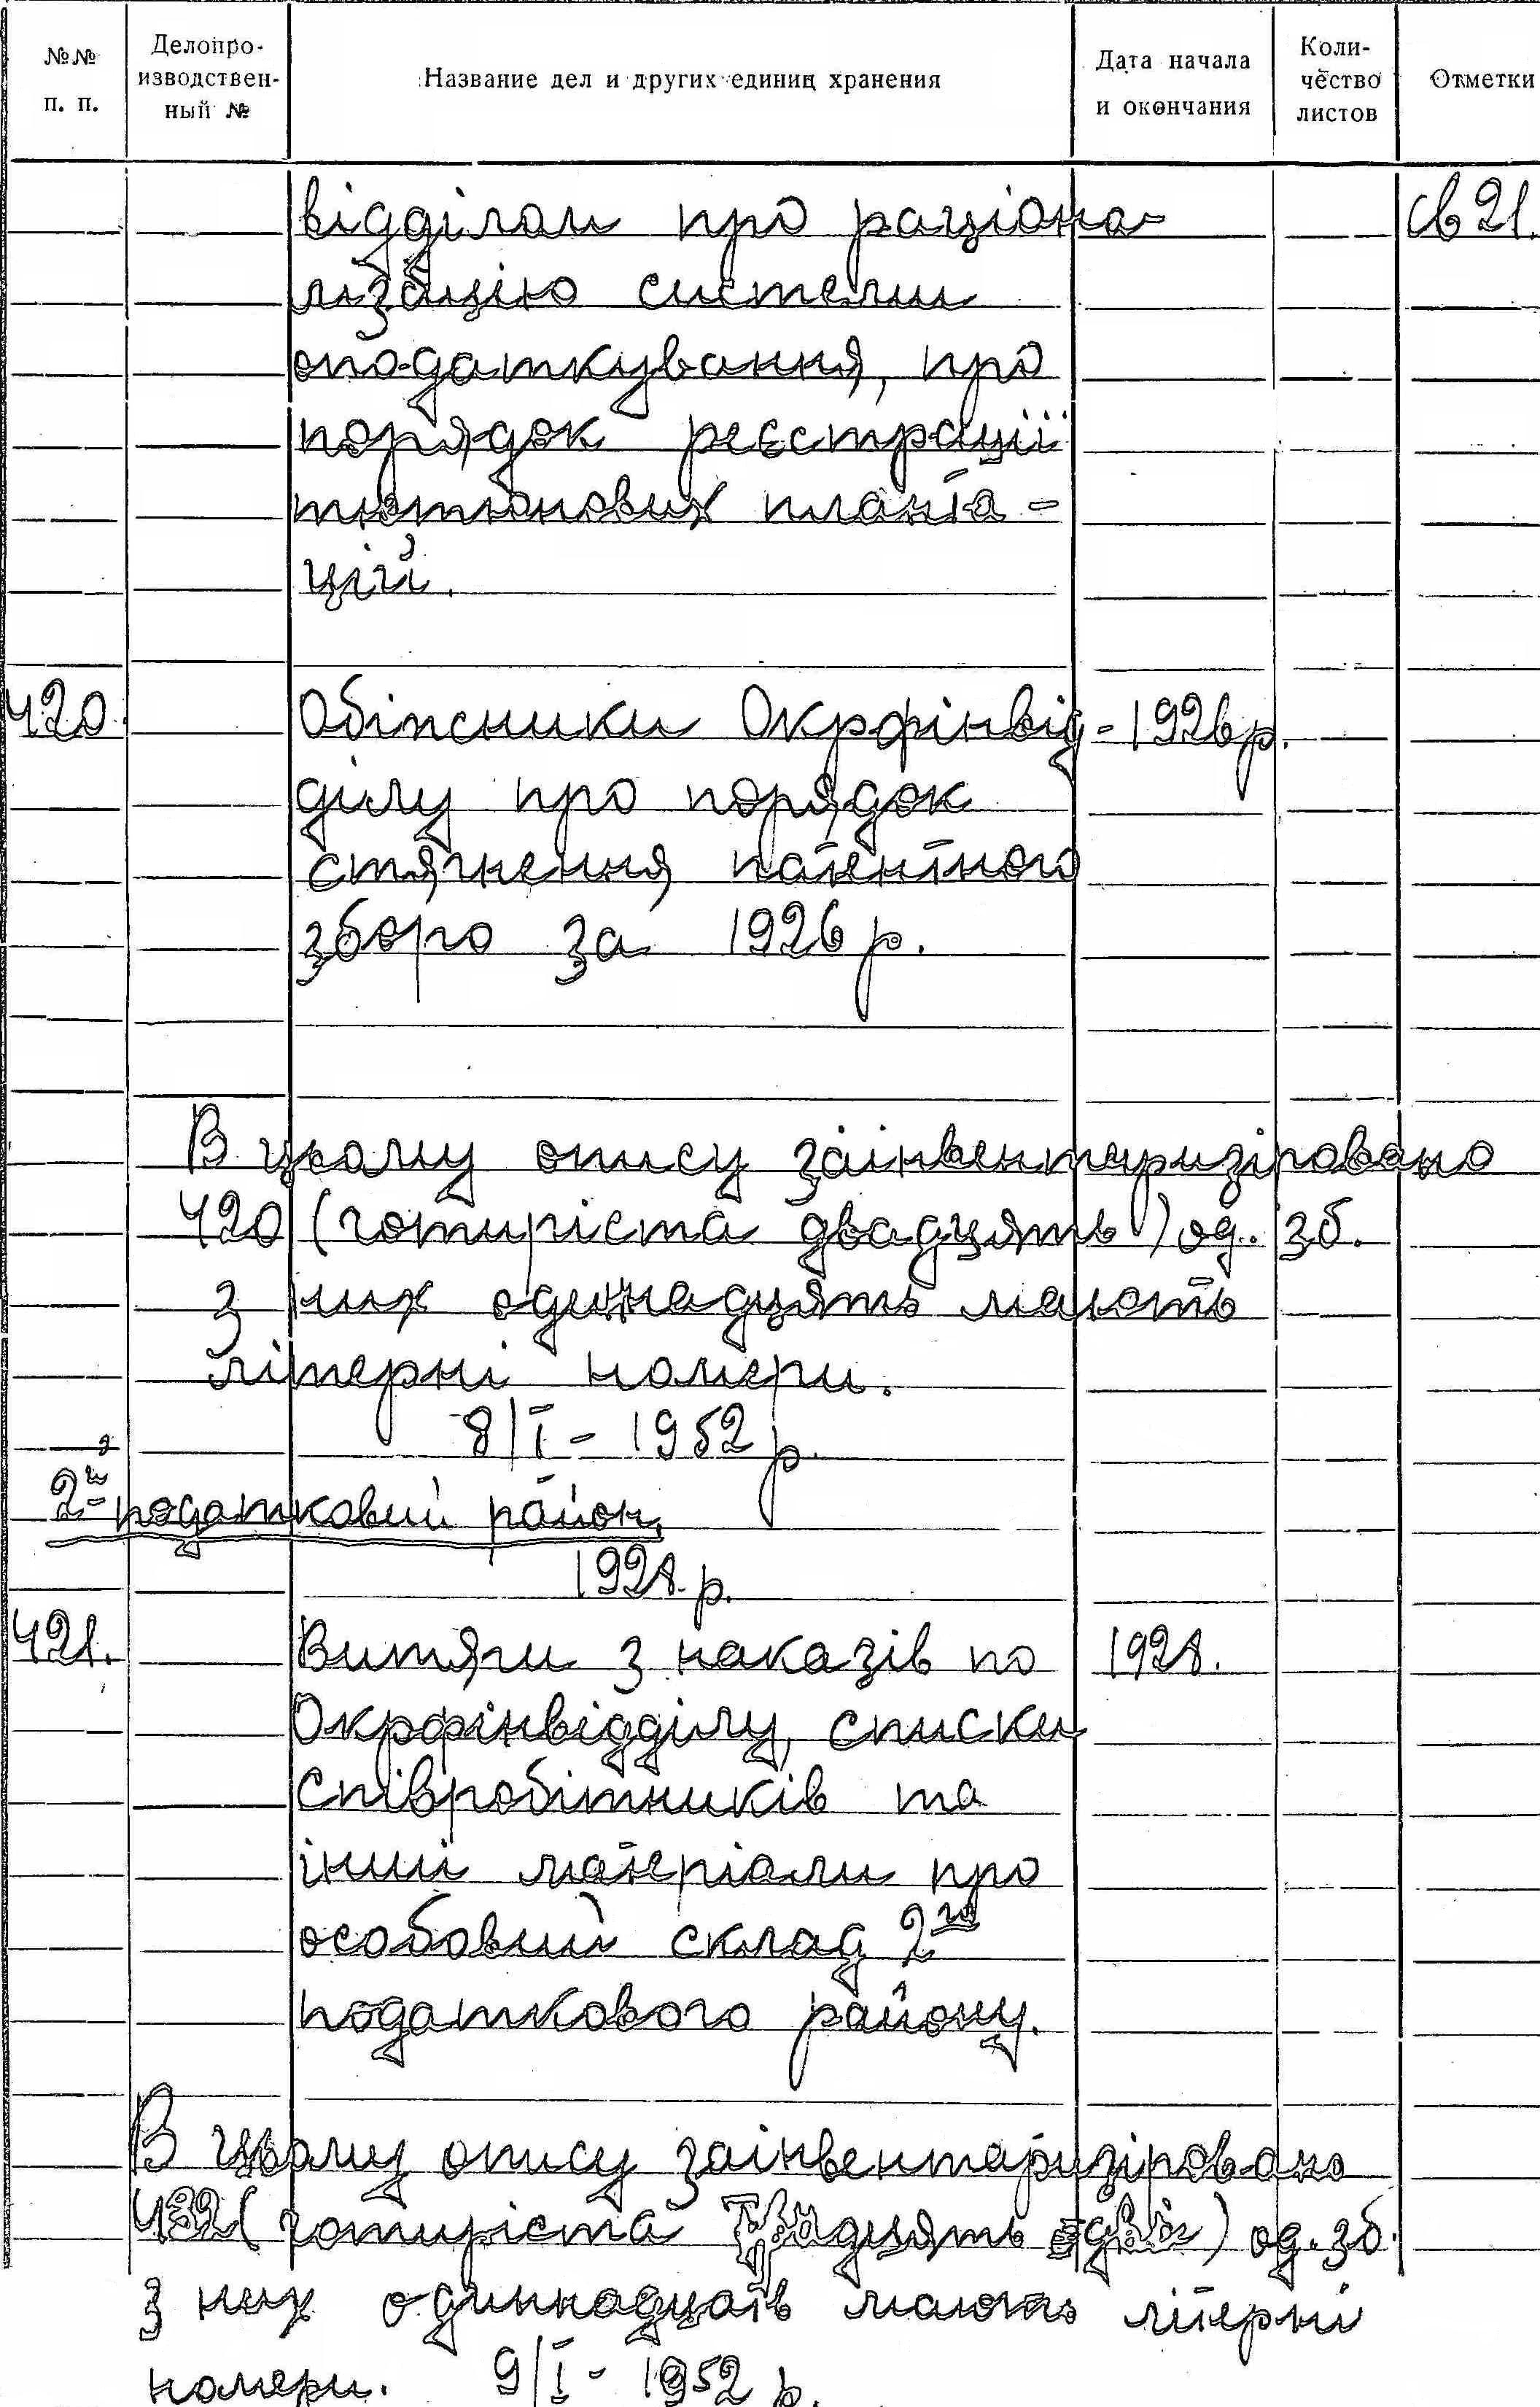 №№ п. п.
Делопро-изводствен-ный №
Название дел и других единиц хранения
Дата начала и окончания
Коли-чество листов
Отметки
відділам про раціона- св 21.
лізацію системи
оподаткування, про
порядок реєстрації
тютюнових планта-
цій.
420. Обіжники Окрфінвід- 1926 р.
ділу про порядок
стягнення патентного
збору за 1926 р.
В цьому опису заінвентаризіровано
420 (чотиріста двадцять) од. зб.
з них одиннадцять мають
літерні номери.
8/I - 1952 р.
2й податковий район.
1928 р.
421. Витяги з наказів по 1928.
Окрфінвідділу, списки
співробітників та
інші матеріали про
особовий склад 2го
податкового району.
В цьому опису заінвентаризіровано
432 (чотиріста тридцять два) од. зб.
з них одиннадцать мають літерні
номери. 9/I - 1952 р.